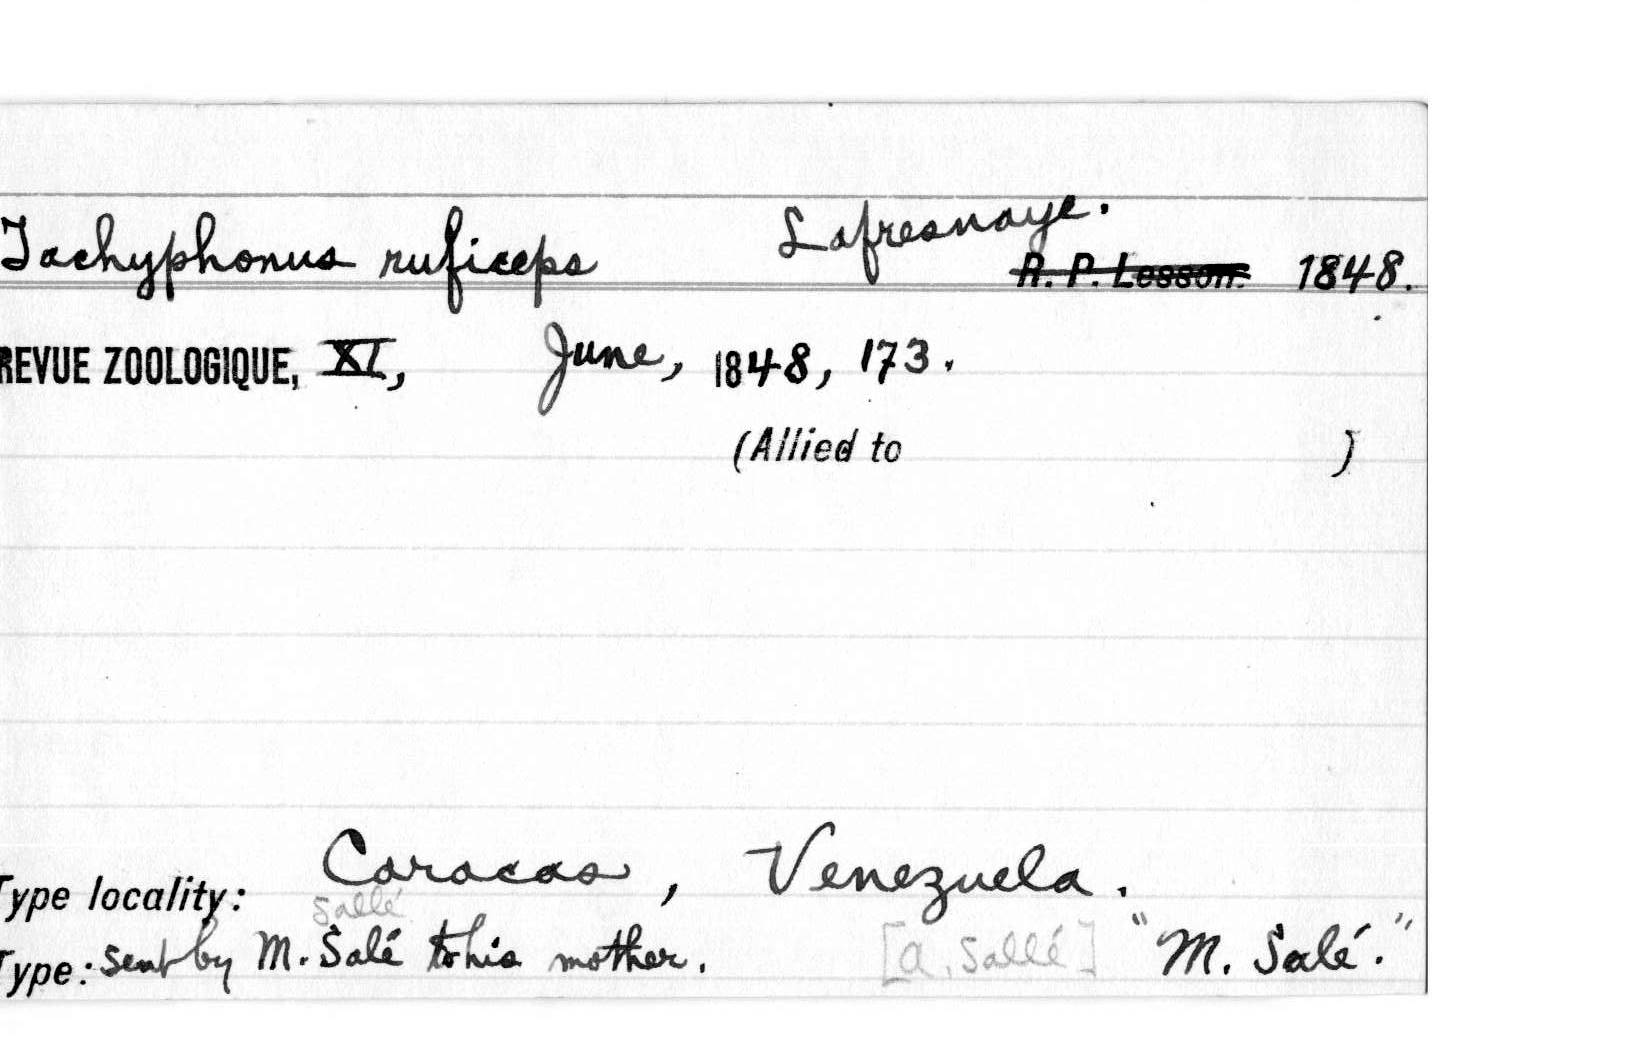 Tachyphonus ruficeps Lafresnaye.
R. P. Lesson. 1848.
REVUE ZOOLOGIQUE, XI, June, 1848, 173.
(Allied to )
Type locality: Caracas, Venezuela.
Sallé
Type: sent by M. Salé to his mother. [A. Sallé] "M. Salé."